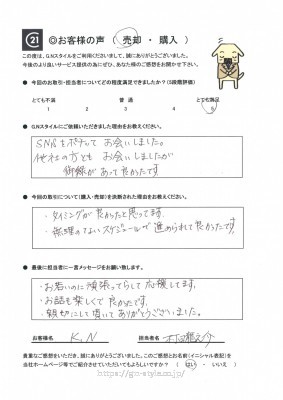 21
◎お客様の声 ( 売却 ・ 購入 )
この度は、G.Nスタイルをご利用くださいまして、誠にありがとうございました。
今後のより良いサービス提供の為にぜひ、あなた様のご感想をお聞かせ下さい。
● 今回のお取引・担当者についてどの程度満足できましたか?(5段階評価)
とても不満 普通 とても満足
1 2 3 4 5
● G.Nスタイルにご依頼いただきました理由をお教えください。
SNSをポチってお会いしました。
他社の方ともお会いしましたが
御縁があって良かったです
● 今回の取引について(購入・売却)を決断された理由をお教えください。
・タイミングが良かったと思ってます。
・無理のないスケジュールで進められて良かったです。
● 最後に担当者に一言メッセージをお願い致します。
・お若いのに頑張ってらして応援してます。
・お話も楽しくて良かったです。
・親切にして頂いてありがとうございました。
お客様名 K,N 担当者名
貴重なご感想をいただき、誠にありがとうございました。このご感想とお名前(イニシャル表記)を
当社ホームページ等でご紹介させていただいてもよろしいですか? ( はい ・ いいえ )
https://gn-style.co.jp/